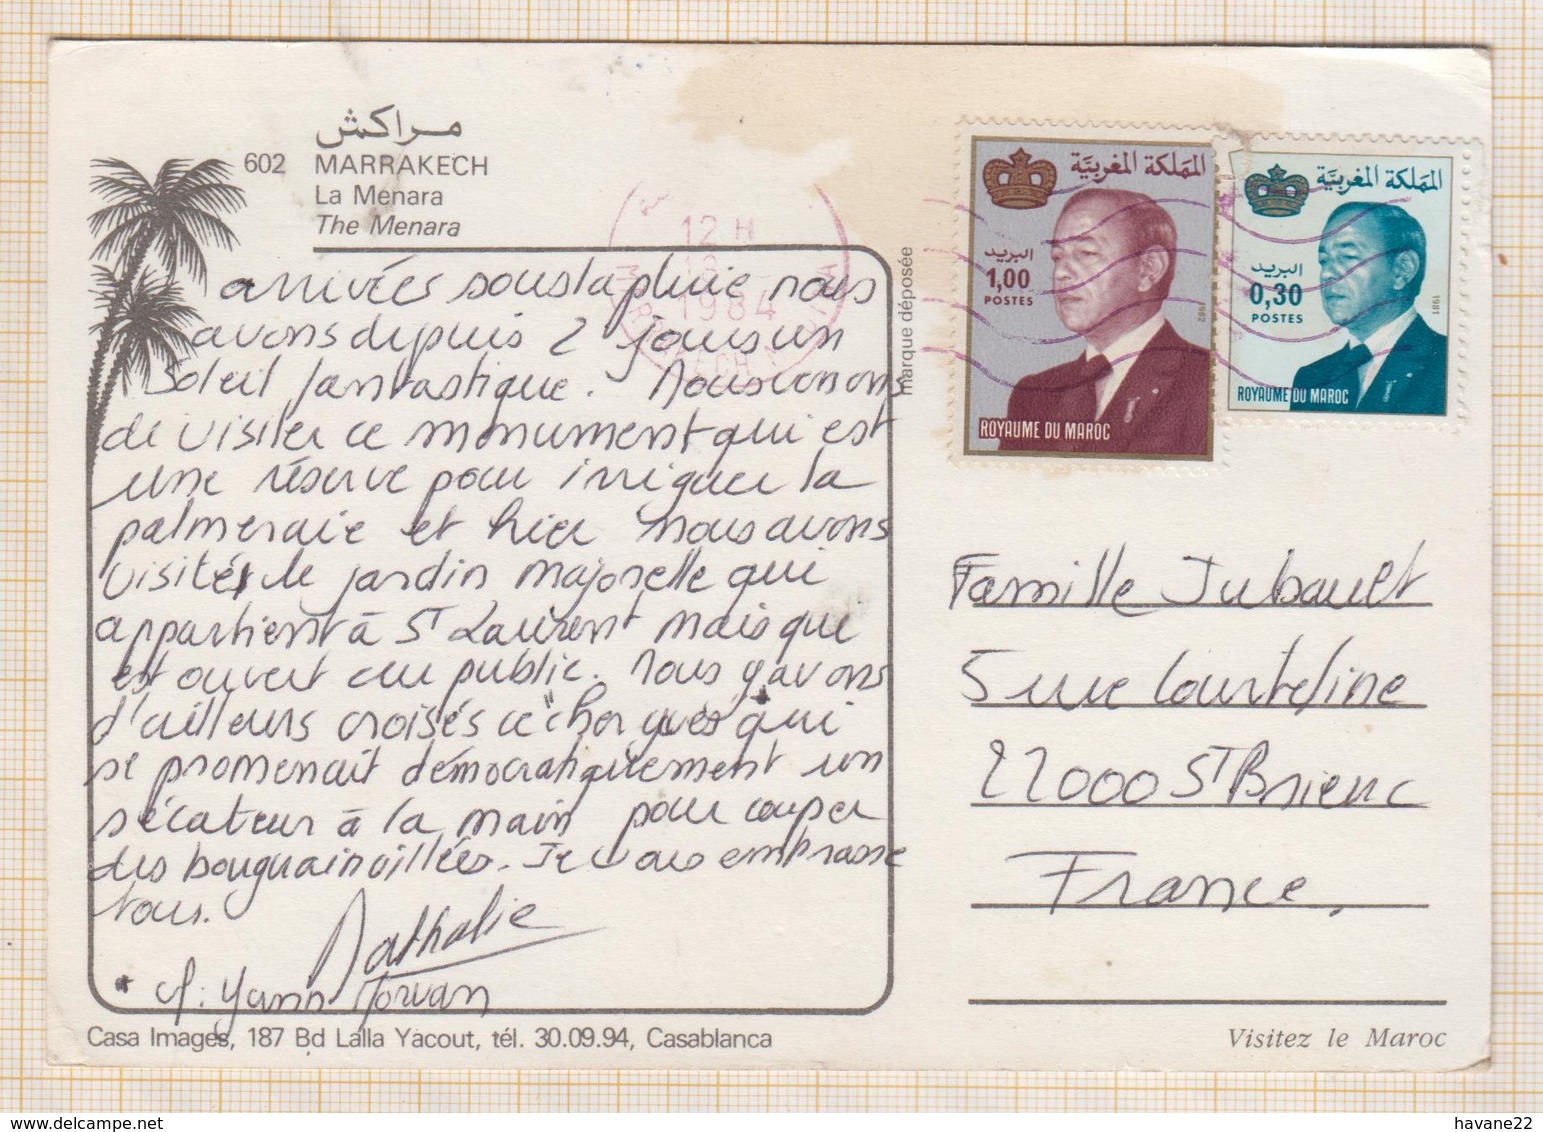 مراكش
602 MARRAKECH
La Menara
The Menara
arrivées sous la pluie nous
avons depuis 2 jours un
soleil fantastique. Nous venons
de visiter ce monument qui est
une réserve pour irriguer la
palmeraie et hier nous avons
visités le jardin majorelle qui
appartient à St Laurent mais que
est ouvert au public. Nous y avons
d'ailleurs croisés ce "cher yves" qui
se promenait démocratiquement un
sécateur à la main pour couper
des bouguainvillées. Je vous embrasse
tous.
Nathalie
* cf: Yann Morvan
Casa Images, 187 Bd Lalla Yacout, tél. 30.09.94, Casablanca
marque déposée
12 H
1984
المملكة المغربية
البريد
1,00
POSTES
1982
ROYAUME DU MAROC
المملكة المغربية
البريد
0,30
POSTES
1981
ROYAUME DU MAROC
Famille Jubault
5 rue Courteline
22000 St Brieuc
France,
Visitez le Maroc
havane22